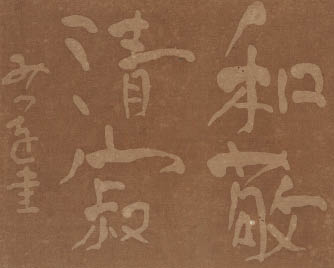 和敬
清寂
みつを